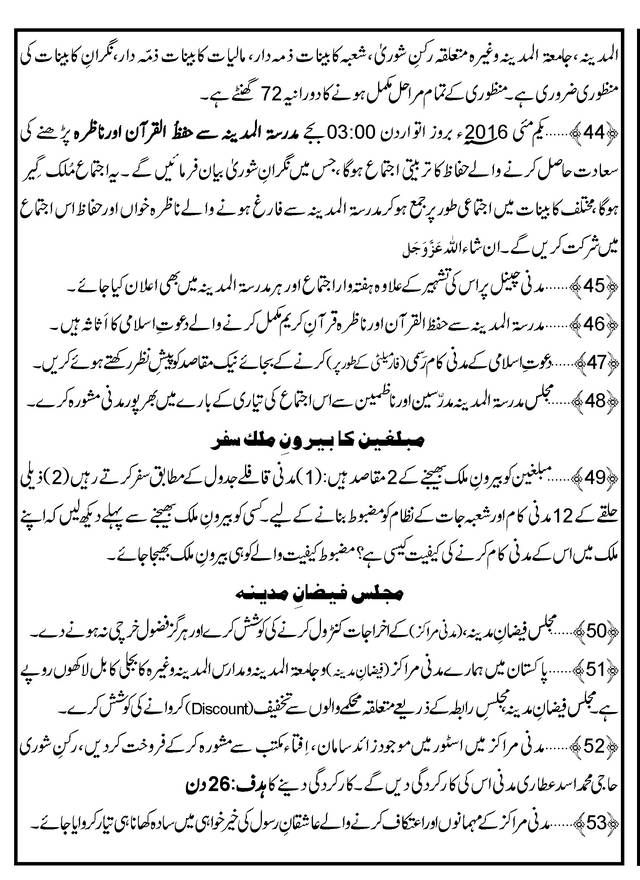 المدینہ، جامعۃ المدینہ وغیرہ متعلقہ رکنِ شوریٰ، شعبہ کابینات ذمہ دار، مالیات کابینات ذمّہ دار، نگرانِ کابینات کی
منظوری ضروری ہے۔ منظوری کے تمام مراحل مکمل ہونے کا دورانیہ 72 گھنٹے ہے۔
﴿44﴾......یکم مئی 2016ء بروز اتوار دن 03:00 بجے مدرسۃ المدینہ سے حفظُ القرآن اور ناظرہ پڑھنے کی
سعادت حاصل کرنے والے حفاظ کا تربیتی اجتماع ہوگا، جس میں نگرانِ شوریٰ بیان فرمائیں گے۔ یہ اجتماع مُلک گیر
ہوگا، مختلف کابینات میں اجتماعی طور پر جمع ہو کر مدرسۃ المدینہ سے فارغ ہونے والے ناظرہ خواں اور حفاظ اس اجتماع
میں شرکت کریں گے۔ ان شاء اللہ عَزَّوَجَل
﴿45﴾......مدنی چینل پر اس کی تشہیر کے علاوہ ہفتہ وار اجتماع اور ہر مدرسۃ المدینہ میں بھی اعلان کیا جائے۔
﴿46﴾......مدرسۃ المدینہ سے حفظ القرآن اور ناظرہ قرآنِ کریم مکمل کرنے والے دعوتِ اسلامی کا اَثاثہ ہیں۔
﴿47﴾......دعوتِ اسلامی کے مدنی کام رسمی (فارمیلٹی کے طور پر) کرنے کے بجائے نیک مقاصد کو پیشِ نظر رکھتے ہوئے کریں۔
﴿48﴾......مجلس مدرسۃ المدینہ مدرّسین اور ناظمین سے اس اجتماع کی تیاری کے بارے میں بھرپور مدنی مشورہ کرے۔
مبلغین کا بیرونِ ملک سفر
﴿49﴾......مبلغین کو بیرونِ ملک بھیجنے کے 2 مقاصد ہیں: (1) مدنی قافلے جدول کے مطابق سفر کرتے رہیں (2) ذیلی
حلقے کے 12 مدنی کام اور شعبہ جات کے نظام کو مضبوط بنانے کے لیے۔ کسی کو بیرونِ ملک بھیجنے سے پہلے دیکھ لیں کہ اپنے
ملک میں اس کے مدنی کام کرنے کی کیفیت کیسی ہے؟ مضبوط کیفیت والے کو ہی بیرونِ ملک بھیجا جائے۔
مجلس فیضانِ مدینہ
﴿50﴾......مجلس فیضانِ مدینہ، (مدنی مراکز) کے اخراجات کنٹرول کرنے کی کوشش کرے اور ہرگز فضول خرچی نہ ہونے دے۔
﴿51﴾......پاکستان میں ہمارے مدنی مراکز (فیضانِ مدینہ) و جامعۃ المدینہ و مدارس المدینہ وغیرہ کا بجلی کا بل لاکھوں روپے
ہے۔ مجلس فیضانِ مدینہ، مجلسِ رابطہ کے ذریعے متعلقہ محکمے والوں سے تخفیف (Discount) کروانے کی کوشش کرے۔
﴿52﴾......مدنی مراکز میں اسٹور میں موجود زائد سامان، اِفتاء مکتب سے مشورہ کر کے فروخت کر دیں، رکنِ شوریٰ
حاجی محمد اسد عطاری مدنی اس کی کارکردگی دیں گے۔ کارکردگی دینے کا ہدف: 26 دن
﴿53﴾......مدنی مراکز کے مہمانوں اور اعتکاف کرنے والے عاشقانِ رسول کی خیر خواہی میں سادہ کھانا ہی تیار کروایا جائے۔